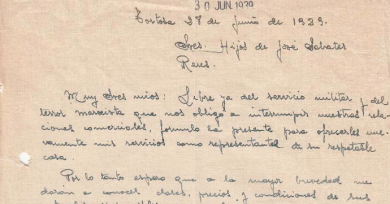 30 JUN. 1939
Tortosa 27 de junio de 1939.
Sres. Hijos de José Sabater
Reus.
Muy Sres mios: Libre ya del servicio militar y del
terror marxista que nos obligó a interrumpir nuestras rela-
ciones comerciales, formulo la presente para ofrecerles nue-
vamente mis servicios como representante de su respetable
casa.
Por lo tanto espero que a la mayor brevedad me
darán a conocer clases, precios y condiciones de sus